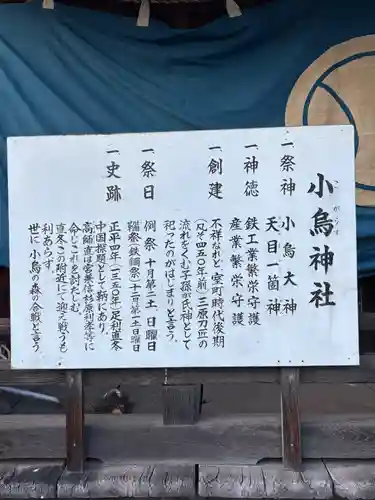 小烏神社
こがらす
一祭神 小烏大神
天目一箇神
一神徳 鉄工業繁栄守護
産業繁栄守護
一創建 不祥なれど室町時代後期
(凡そ四五〇年前)三原刀匠の
流れをくむ子孫が氏神として
祀ったのがはじまりと言う
一祭日 例祭 十月第二土 日曜日
鞴祭(鉄鋼祭)十二月第一土日曜日
一史跡 正平四年(一三五〇年)足利直冬
中国探題として鞆にあり
高師直は宮兼信杉原利孝等に
命じこれを討たしむ
直冬この附近にて迎え戦うも
利あらず。
世に 小烏の森の合戦と言う